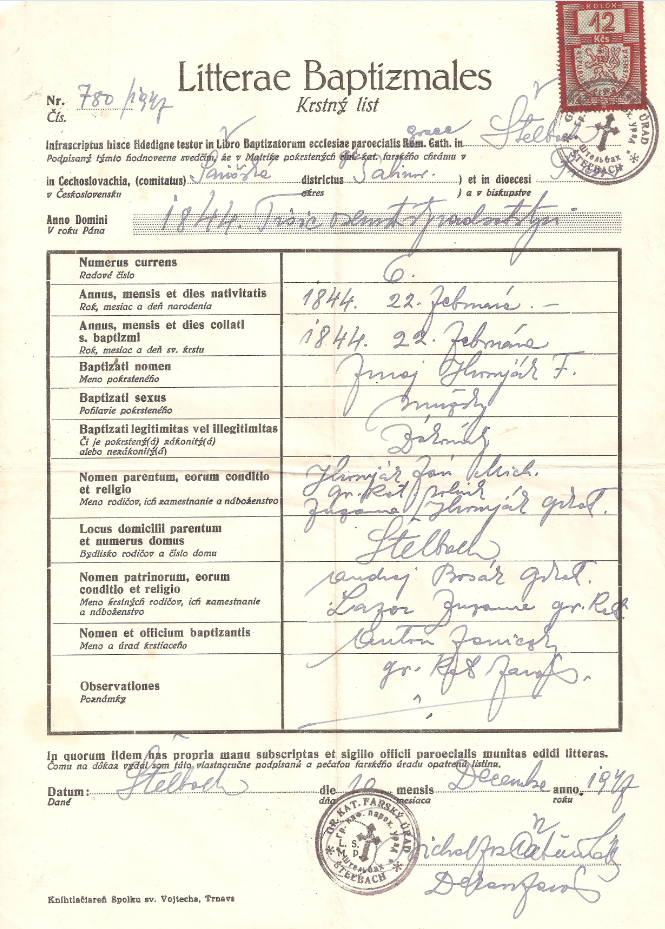 KOLOK
12
Kčs
Litterae Baptizmales
Krstný list
Nr. 780/1947
Čís.
Infrascriptus hisce fidedigne testor in Libro Baptizatorum ecclesiae paroecialis Rom. Cath. in Štelbach
Podpísaný týmto hodnoverne svedčím, že v Matrike pokrstených rím. kat. farského chrámu v
in Cechoslovachia, (comitatu) districtus Sabinov. ) et in dioecesi
v Československu okres ) a v biskupstve
Anno Domini 1844. Tisíc
V roku Pána
Numerus currens 6.
Radové číslo
Annus, mensis et dies nativitatis 1844. 22. februára. –
Rok, mesiac a deň narodenia
Annus, mensis et dies collati 1844. 22. februára
s. baptizmi
Rok, mesiac a deň sv. krstu
Baptizati nomen Juraj Hromják F.
Meno pokrsteného
Baptizati sexus mužský
Pohlavie pokrsteného
Baptizati legitimitas vel illegitimitas
Či je pokrstený(á) zákonitý(á)
alebo nezákonitý(á)
Nomen parentum, eorum conditio Hromják Ján Mich.
et religio gr. kat. roľník
Meno rodičov, ich zamestnanie a náboženstvo Zuzana Hromják gr. kat.
Locus domicilii parentum Štelbach
et numerus domus
Bydlisko rodičov a číslo domu
Nomen patrinorum, eorum Andrej Bosák gr. kat.
conditio et religio
Meno krstných rodičov, ich zamestnanie Lazor Zuzana gr. kat.
a náboženstvo
Nomen et officium baptizantis Anton
Meno a úrad krstiaceho gr. kat.
Observationes
Poznámky
In quorum fidem has propria manu subscriptas et sigillo officii paroecialis munitas edidi litteras.
Čomu na dôkaz vydal som túto vlastnoručne podpísanú a pečaťou farského úradu opatrenú listinu.
Datum: Štelbach die mensis Decembr anno 1947
Dané dňa mesiaca roku
GR. KAT. FARSKÝ ÚRAD
ŠTELBACH
Michal
Knihtlačiareň Spolku sv. Vojtecha, Trnava